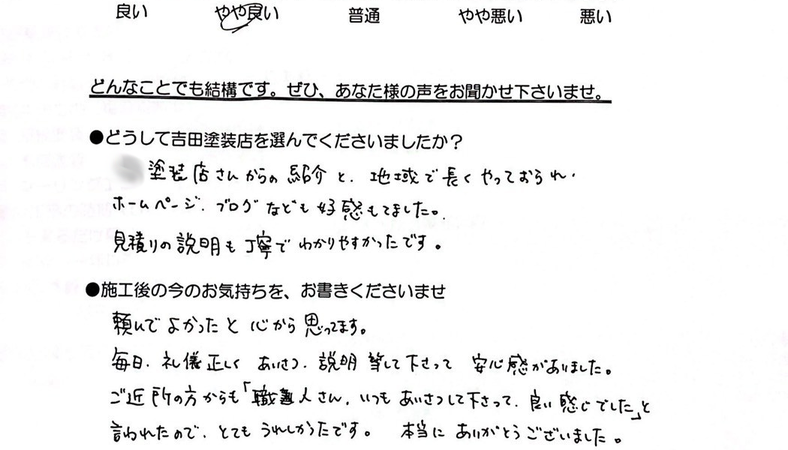 良い やや良い 普通 やや悪い 悪い
どんなことでも結構です。ぜひ、あなた様の声をお聞かせ下さいませ。
●どうして吉田塗装店を選んでくださいましたか？
塗装店さんからの紹介と、地域で長くやっておられ、
ホームページ、ブログなども好感もてました。
見積りの説明も丁寧でわかりやすかったです。
●施工後の今のお気持ちを、お書きくださいませ
頼んでよかったと心から思ってます。
毎日、礼儀正しくあいさつ、説明等して下さって安心感がありました。
ご近所の方からも「職人さん、いつもあいさつして下さって、良い感じでした」と
言われたので、とてもうれしかったです。 本当にありがとうございました。